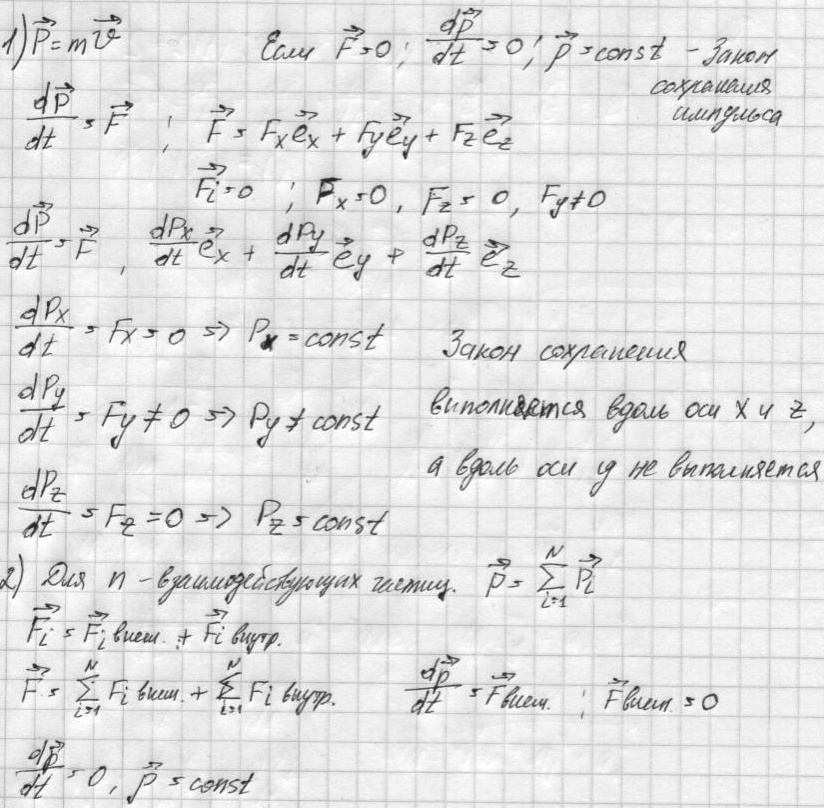 1) P⃗ = mv⃗ Если F⃗ = 0 ; dp⃗/dt = 0 ; p⃗ = const – Закон
сохранения
импульса
dP⃗/dt = F⃗ ; F⃗ = Fₓe⃗ₓ + Fye⃗y + Fze⃗z
F⃗i = 0 ; Fₓ = 0, Fz = 0, Fy ≠ 0
dP⃗/dt = F⃗, dPx/dt e⃗x + dPy/dt e⃗y + dPz/dt e⃗z
dPx/dt = Fx = 0 => Px = const Закон сохранения
dPy/dt = Fy ≠ 0 => Py ≠ const выполняется вдоль оси x и z,
а вдоль оси y не выполняется
dPz/dt = Fz = 0 => Pz = const
2) Для n – взаимодействующих частиц. p⃗ = ∑ᵢ₌₁ᴺ P⃗i
F⃗i = F⃗i внеш. + F⃗i внутр.
F⃗ = ∑ᵢ₌₁ᴺ Fi внеш. + ∑ᵢ₌₁ᴺ Fi внутр. dp⃗/dt = F⃗внеш. ; F⃗внеш. = 0
dp⃗/dt = 0, p⃗ = const